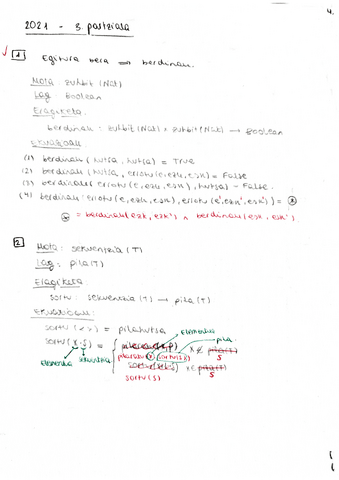 4.
2021 - 3. partziala
1 Egitura bera => berdinak.
Mota: zuhbit (Nat)
Lag: boolean
Eragiketa
berdinak: zuhbit(Nat) x zuhbit(Nat) → boolean
Ekuazioak
(1) berdinak (hutsa, hutsa) = True
(2) berdinak (hutsa, errotu(e, ezk, esk)) = False
(3) berdinak (errotu(e, ezk, esk), hutsa) = False.
(4) berdinak (errotu(e, ezk, esk), errotu(e', ezk', esk')) =
= berdinak(ezk, ezk') ∧ berdinak(esk, esk').
2 Mota: sekuentzia (T)
Lag: pila(T)
Eragiketa
sortu: sekuentzia (T) → pila (T)
Ekuazioak
sortu (< >) = pilahutsa
elementua
pila
sortu (x · s) =
x ∉ s
elementua sekuentzia
x ∈ s
sortu(s)